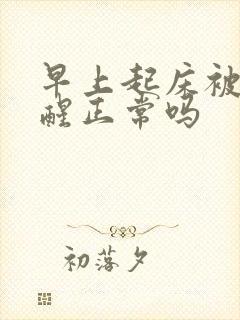 早上起床被
醒正常吗
初落夕